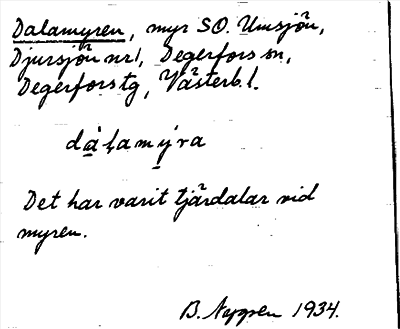 Dalamyren, myr SO. Umsjön,
Djursjön nr1, Degerfors sn,
Degerfors tg, Västerb. l.
dàḷamýra
Det har varit tjärdalar vid
myren.
B. 1934.